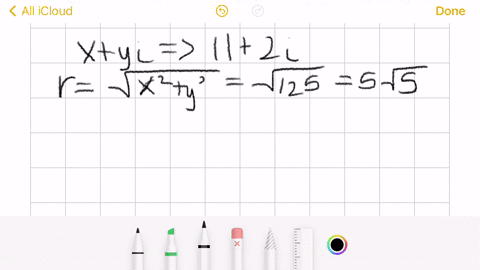 All iCloud Done
x+yi => 11+2i
r= √x²+y² = √125 = 5√5